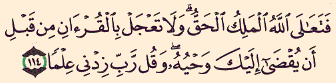 فَتَعَٰلَى ٱللَّهُ ٱلْمَلِكُ ٱلْحَقُّ ۗ وَلَا تَعْجَلْ بِٱلْقُرْءَانِ مِن قَبْلِ
أَن يُقْضَىٰٓ إِلَيْكَ وَحْيُهُۥ ۖ وَقُل رَّبِّ زِدْنِى عِلْمًا ١١٤